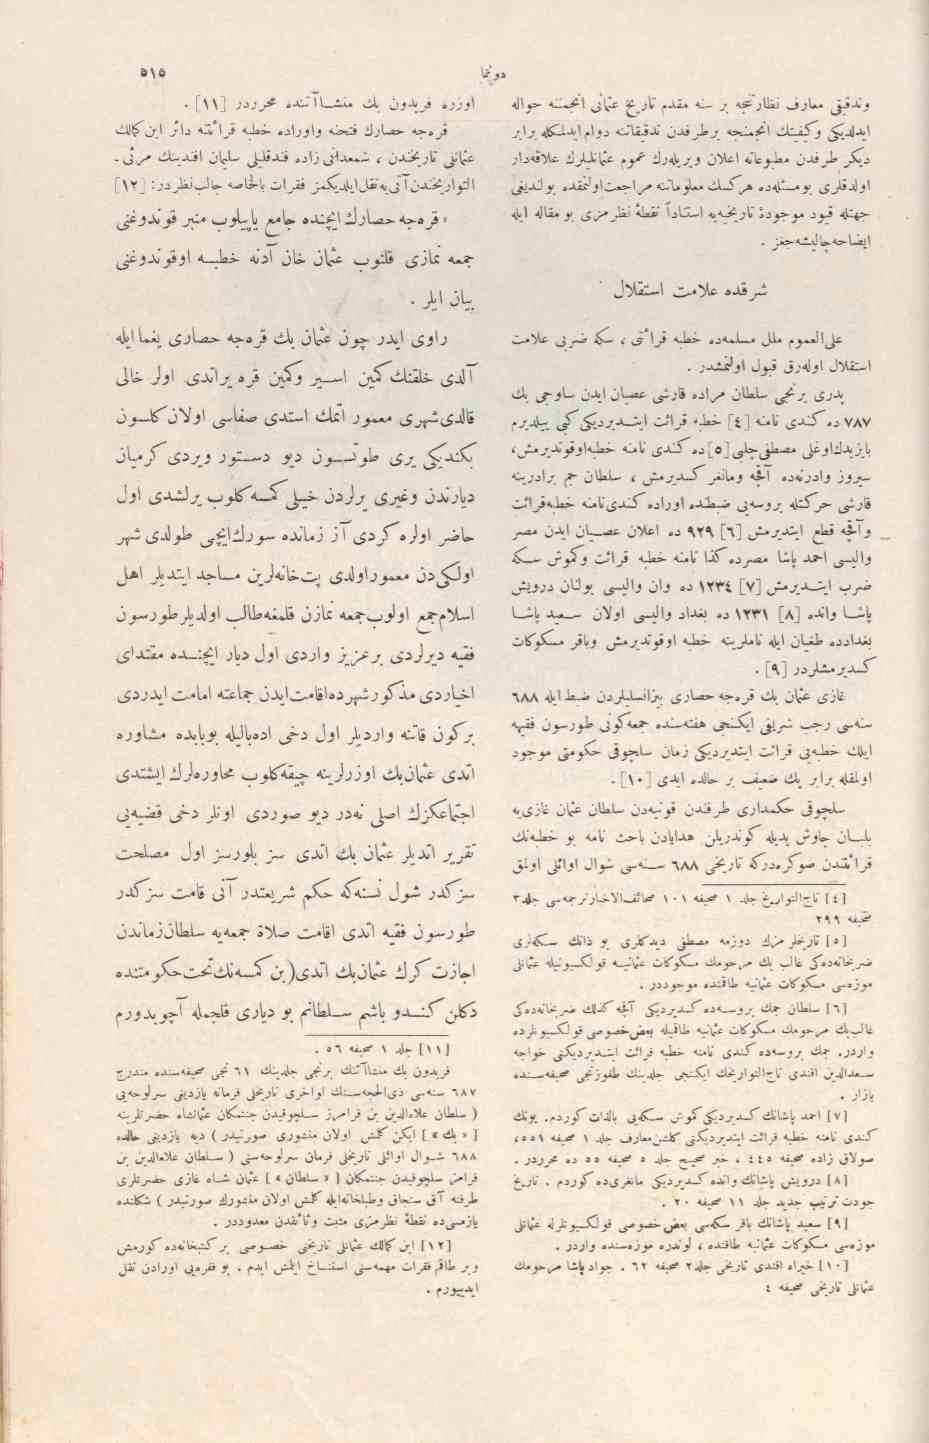 دونما
٥١٥
وتدقیقی معارف نظارتنجه بر سنه مقدم تاریخ عثمانی انجمننه حواله
ایدلدیکی وکیفیتك انجمنجه برطرفدن تدقیقاتنه دوام ایدلمکله برابر
دیکر طرفدن مطبوعاته اعلان ویریله‌رك عموم عثمانلیلرك علاقه‌دار
اولدقلری بومسئله‌ده هرکسك معلوماتنه مراجعت اولنمقده بولندیغی
جهتله قیود موجودهٔ تاریخیه‌یه استناداً نقطهٔ نظر مزی بو مقاله ایله
ایضاحه چالیشه‌جغز .
شرقده علامت استقلال
علی‌العموم ملل مسلمه‌ده خطبه قرائتی ، سکه ضربی علامت
استقلال اوله‌رق قبول اولنمشدر .
پدری برنجی سلطان مراده قارشی عصیان ایدن ساوجی بك
٧٨٧ ده کندی نامنه [٤] خطبه قرائت ایتدیردیکی کبی ییلدیرم
بایزیدك اوغلی مصطفی چلبی [٥] ده کندی نامنه خطبه اوقوتدیرمش،
سیروز وادرنه‌ده آقچه ومانغر کسدیرمش ، سلطان جم برادرینه
قارشی حرکتله بروسه‌یی ضبطنده اوراده کندی نامنه خطبه قرائت
وآقچه قطع ایتدیرمش [٦] ٩٢٩ ده اعلان عصیان ایدن مصر
والیسی احمد پاشا مصرده کذا نامنه خطبه قرائت وکموش سکه
ضرب ایتدیرمش [٧] ١٢٣٤ ده وان والیسی بولنان درویش
پاشا وانده [٨] ١٢٣١ ده بغداد والیسی اولان سعید پاشا
بغدادده طغیان ایله ناملرینه خطبه اوقوتدیرمش وباقر مسکوکات
کسدیرمشلردر [٩] .
غازی عثمان بك قره‌جه حصاری بیزانسلیلردن ضبط ایله ٦٨٨
سنه‌سی رجب شریفی ایکنجی هفته‌سنده جمعه‌کونی طورسون فقیه
ایلك خطبه‌یی قرائت ایتدیردیکی زمان سلچوقی حکومتی موجود
اولمقله برابر پك ضعیف بر حالده ایدی [١٠] .
سلچوقی حکمداری طرفندن قونیه‌دن سلطان عثمان غازی‌یه
بلبان جاوش یدیله کوندریلن هدایادن باحث نامه بو خطبه‌نك
قرائتندن صوکره‌درکه تاریخی ٦٨٨ سنه‌سی شوال اوائلی اولمق
[٤] تاج‌التواریخ جلد ١ صحیفه ١٠١ صحائف‌الاخبار ترجمه‌سی جلد ٣
صحیفه ٢٩٦
[٥] تاریخلر مزك دوزمه مصطفی دیدکلری بو ذاتك سکه‌لری
ضربخانه‌ده‌کی غالب بك مرحومك مسکوکات عثمانیه قولکسیونیله عثمانلی
موزه‌سی مسکوکات عثمانیه طاقمنده موجوددر .
[٦] سلطان جمك بروسه‌ده کسدیردیکی آقچه کذلك ضربخانه‌ده‌کی
غالب‌بك مرحومك مسکوکات عثمانیه طاقمیله بعض خصوصی قولکسیونلرده
واردر. جمك بروسه‌ده کندی نامنه خطبه قرائت ایتدیردیکنی خواجه
سعدالدین افندی تاج‌التواریخك ایکنجی جلدینك طقوزنجی صحیفه‌سنده
یازار .
[٧] احمد پاشانك کسدیردیکی کموش سکه‌یی بالذات کوردم. بونك
کندی نامنه خطبه قرائت ایتدیردیکنی کلشن‌معارف جلد ١ صحیفه ٥٥١،
صولاق زاده صحیفه ٤٤٥ ، خبر صحیح جلد ٥ صحیفه ٥٥ ده محرردر .
[٨] درویش پاشانك وانده کسدیردیکی مانغری‌ده کوردم . تاریخ
جودت ترتیب جدید جلد ١١ صحیفه ٢٠ .
[٩] سعید پاشانك باقر سکه‌سی بعض خصوصی قولکسیونلرله عثمانلی
موزه‌سی مسکوکات عثمانیه طاقمنده ، لوندره موزه‌سنده واردر .
[١٠] خیراه افندی تاریخی جلد ٢ صحیفه ٦٢ . جواد پاشا مرحومك
عثمانلی تاریخی صحیفه ٤
اوزره فریدون بك منشاآتنده محرردر [١١] .
قره‌جه حصارك فتحنه واوراده خطبه قرائتنه دائر ابن کمالك
عثمانلی تاریخندن ، شمعدانی زاده فندقلیلی سلیمان افندینك مرئی-
التواریخندن آتی‌یه نقل ایلدیکمز فقرات بالخاصه جالب نظردر: [١٢]
« قره‌جه حصارك ایچنده جامع یاپیلوب منبر قوندوغنی
جمعه نمازی قلنوب عثمان خان آدنه خطبه اوقوندوغنی
بیان ایلر .
راوی ایدر چون عثمان بك قره‌جه حصاری یغما ایله
آلدی خلقنك کمین اسیر وکمین قره یراتدی اولر خالی
قالدی شهری معمور اتمك استدی صفاسی اولان کلسون
بکندیکی یری طوتسون دیو دستور ویردی کرمیان
دیارندن وغیری یرلردن خیلی کمسه کلوب یرلشدی اول
حاضر اولره کردی آز زمانده سورك ایچی طولدی شهر
اولکی‌دن معمور اولدی پت خانه‌لرین مساجد ایتدیلر اهل
اسلام جمع اولوب جمعه نمازن قلمغه طالب اولدیلر طورسون
فقیه دیرلردی بر عزیز واردی اول دیار ایچنده مقتدای
اخیاردی مذکور شهرده اقامت ایدن جماعته امامت ایدردی
برکون قاتنه واردیلر اول دخی اده‌بالیله بوبابده مشاوره
اتدی عثمان‌بك اوزرلرینه چیقه‌کلوب محاوره‌لرك ایشتدی
اجتماعکزك اصلی نه‌در دیو صوردی اونلر دخی قضیه‌یی
تقریر اتدیلر عثمان بك اتدی سز بلورسز اول مصلحت
سزکدر شول نسنه که حکم شریعتدر آنی قامت سزکدر
طورسون فقیه اتدی اقامت صلاة جمعه‌یه سلطان زماندن
اجازت کرك عثمان‌بك اتدی (بن کمسه‌نك تحت حکومتنده
دکلن کندو باشم سلطانم بو دیاری قلجمله آچوبدورم
[١١] جلد ١ صحیفه ٥٦ .
فریدون بك منشاآتنك برنجی جلدینك ٦١ نجی صحیفه‌سنده مندرج
٦٨٧ سنه‌سی ذی‌الحجه‌سنك اواخری تاریخلی فرمانه یازدیغی سرلوحه‌یی
( سلطان علاءالدین بن فرامرز سلچوقیدن جنتمکان عثمانشاه حضرتلرینه
[ « بك » ] ایکن کلمش اولان منشوری صورتیدر ) دیه یازدیغی حالده
٦٨٨ شوال اوائلی تاریخلی فرمان سرلوحه‌سنی ( سلطان علاءالدین بن
فرامرز سلچوقیدن جنتمکان [ « سلطان » ] عثمان شاه غازی حضرتلری
طرفنه آق سنجاق وطبلخانه ایله کلمش اولان منشورك صورتیدر ) شکلنده
یازمسی‌ده نقطهٔ نظر مزی مثبت وثائقدن معدوددر .
[١٢] ابن کمالك عثمانلی تاریخی خصوصی بر کتبخانه‌ده کورمش
وبر طاقم فقرات مهمه‌سنی استنساخ ایتمش ایدم . بو فقره‌یی اورادن نقل
ایدییورم .